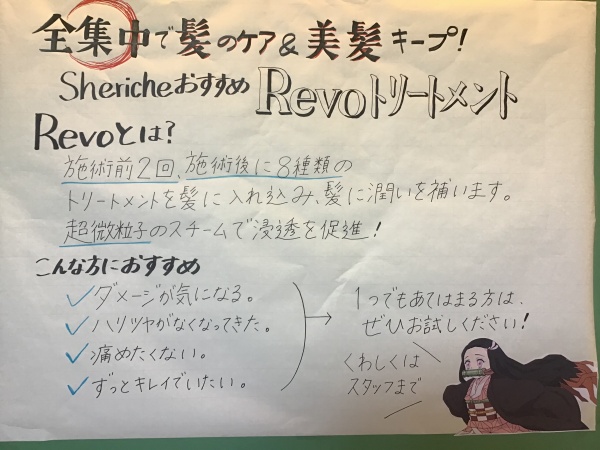 全集中で髪のケア&美髪キープ!
Shericheおすすめ Revoトリートメント
Revoとは?
施術前2回、施術後に8種類の
トリートメントを髪に入れ込み、髪に潤いを補います。
超微粒子のスチームで浸透を促進!
こんな方におすすめ
ダメージが気になる。
ハリツヤがなくなってきた。
痛めたくない。
ずっとキレイでいたい。
→ 1つでもあてはまる方は、
ぜひお試しください!
くわしくは
スタッフまで